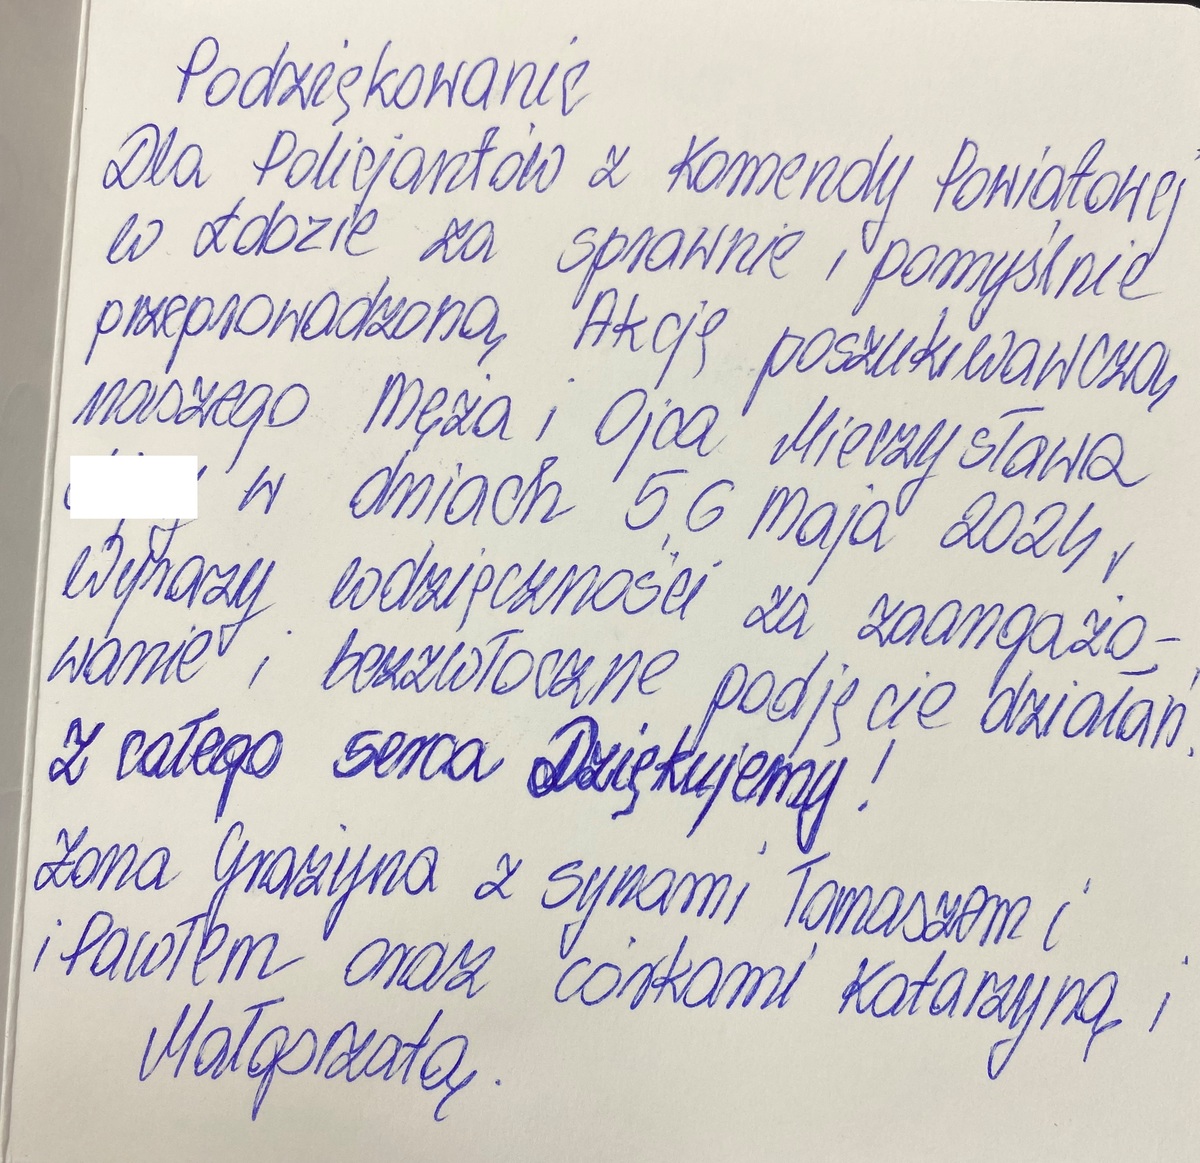 Podziękowanie
Dla Policjantów z Komendy Powiatowej
w Łobzie za sprawnie i pomyślnie
przeprowadzoną Akcję poszukiwawczą
naszego Męża i Ojca Mieczysława
w dniach 5,6 Maja 2024,
Wyrazy wdzięczności za zaangażo-
wanie i bezzwłoczne podjęcie działań.
Z całego serca Dziękujemy!
Żona Grażyna z synami Tomaszem i
i Pawłem oraz córkami Katarzyną i
Małgorzatą.